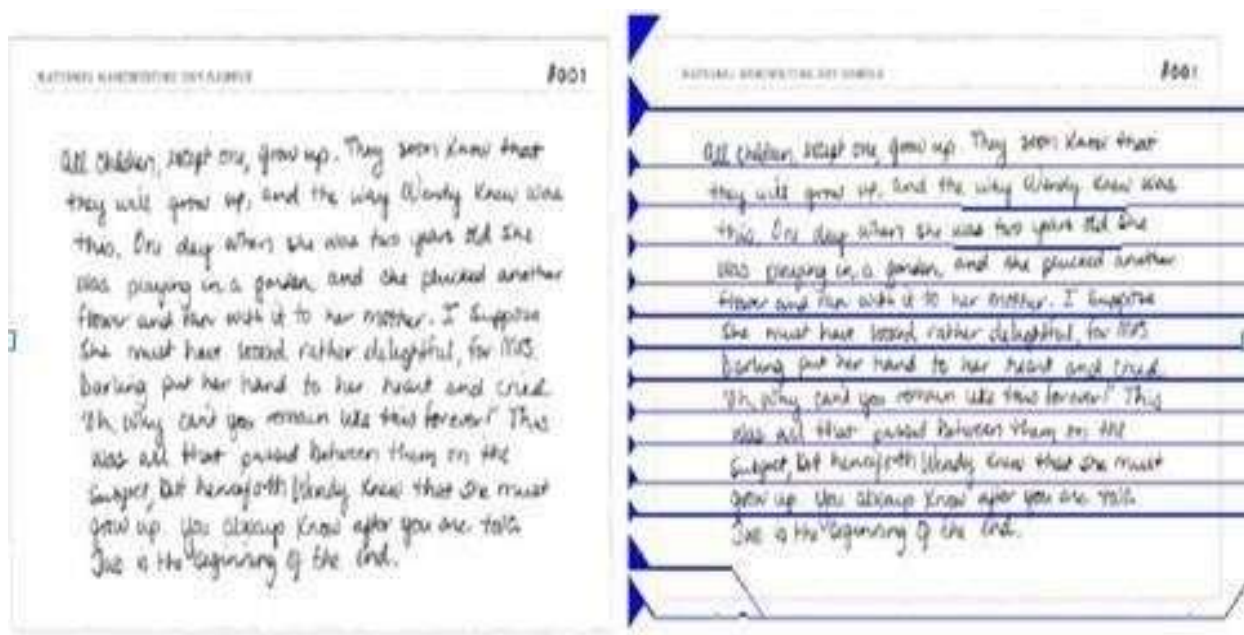 NATIONAL HANDWRITING DAY SAMPLE
#001
All children, except one, grow up. They soon know that
they will grow up, and the way Wendy knew was
this. One day when she was two years old she
was playing in a garden, and she plucked another
flower and ran with it to her mother. I suppose
she must have looked rather delightful, for Mrs.
Darling put her hand to her heart and cried
"Oh, why can't you remain like this forever!" This
was all that passed between them on the
subject, but henceforth Wendy knew that she must
grow up. You always know after you are two.
Two is the beginning of the end.
NATIONAL HANDWRITING DAY SAMPLE
#001
All children, except one, grow up. They soon know that
they will grow up, and the way Wendy knew was
this. One day when she was two years old she
was playing in a garden, and she plucked another
flower and ran with it to her mother. I suppose
she must have looked rather delightful, for Mrs.
Darling put her hand to her heart and cried
"Oh, why can't you remain like this forever!" This
was all that passed between them on the
subject, but henceforth Wendy knew that she must
grow up. You always know after you are two.
Two is the beginning of the end.